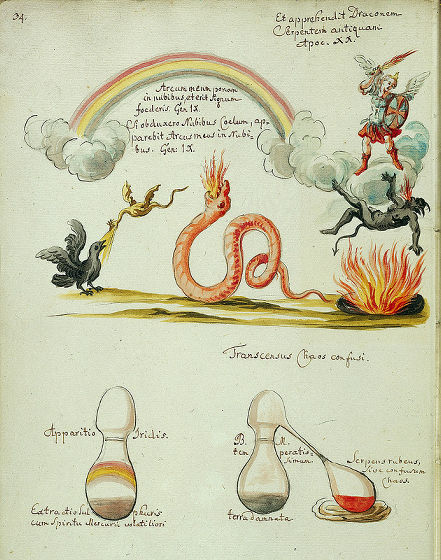 34.
Et apprehendit Draconem
Serpentem antiquam
Apoc. XX.
Arcum meum ponam
in nubibus, et erit signum
foederis. Gen IX.
Si obduxero Nubibus Coelum, ap-
parebit Arcus meus in Nubi-
bus. Gen: IX.
Transcensus Chaos confusi.
Apparitio Iridis.
Extractio Sulphuris
cum spiritu Mercurii volatiliori
B. M.
tem peratis-
simum
terra damnata
Serpens rubeus,
sive confusum
Chaos.